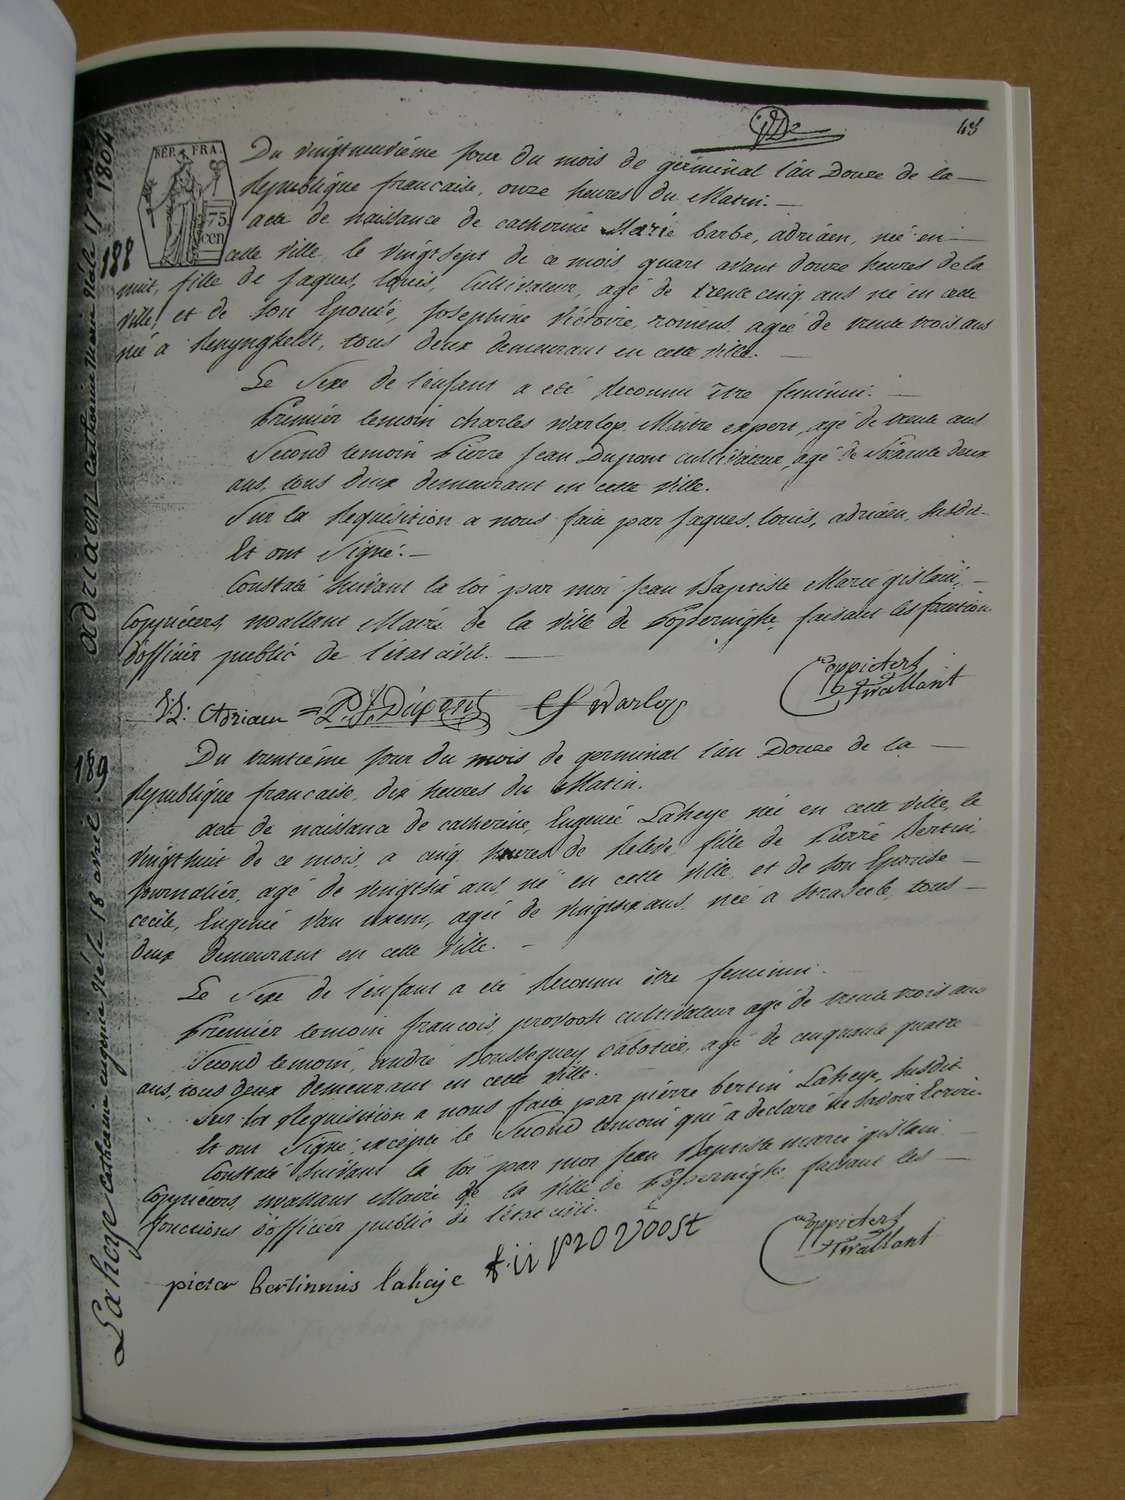 45
RÉP. FRA.
75
cen
adriaen catherine Marie Née le 17 avril 1804
188
Du vingtneuvième jour du mois de germinal l'an Douze de la
Republique francaise, onze heures du Matin.
acte de naissance de catherine Marie barbe, adriaen, née en
cette ville, le vingtsept de ce mois, quart avant douze heures de la
nuit, fille de Jaques, Louis, Cultivateur, agé de trente cinq ans né en cette
ville, et de son Epouse, Josephine Victoire, romens, agée de trente trois ans
née à Renynghelst, tous deux demeurant en cette ville.
Le Sexe de l'enfant a eté Reconnu être feminin.
Premier temoin charles Warlop, Maitre expert, agé de trente ans
Second temoin Pierre Jean Dupont cultivateur, agé de Soixante deux
ans, tous deux demeurant en cette ville.
Sur la Requisition a nous faite par Jaques, Louis, adriaen, Susdit.
Et ont Signé.
Constaté Suivant la loi par moi Jean Baptiste Marie gislain,
Coppieters, Wallant Maire de la ville de Poperinghe, faisant les fonction
d'officier public de l'état civil.
Adriaen P. J. Dupont Warlop
Coppieters
Wallant
Lahaye catherine eugenie Née le 18 avril
189
Du trentième jour du mois de germinal l'an Douze de la
Republique francaise, dix heures du Matin.
acte de naissance de catherine, Eugenie Lahaye née en cette ville, le
vingthuit de ce mois, a cinq heures de Relevé, fille de Pierre Bertin,
journalier, agé de vingtsix ans, né en cette ville, et de son Epouse
cecile, Eugenie Van uxem, agée de vingtsix ans, née à Strazeele, tous
deux demeurant en cette ville.
Le Sexe de l'enfant a eté Reconnu être feminin.
Premier temoin francois, provoost cultivateur agé de trente trois ans
Second temoin, andré Sabotier, agé de cinquante quatre
ans, tous deux demeurant en cette ville.
Sur la Requisition a nous faite par pierre bertin Lahaye, Susdit
Et ont Signé, excepté le Second temoin qui a declaré ne Savoir Ecrire.
Constaté Suivant la loi par moi Jean Baptiste marie gislain
Coppieters, Wallant Maire de la ville de Poperinghe, faisant les
fonctions d'officier public de l'état civil.
pieter bertinnus lahaije provoost
Coppieters
Wallant